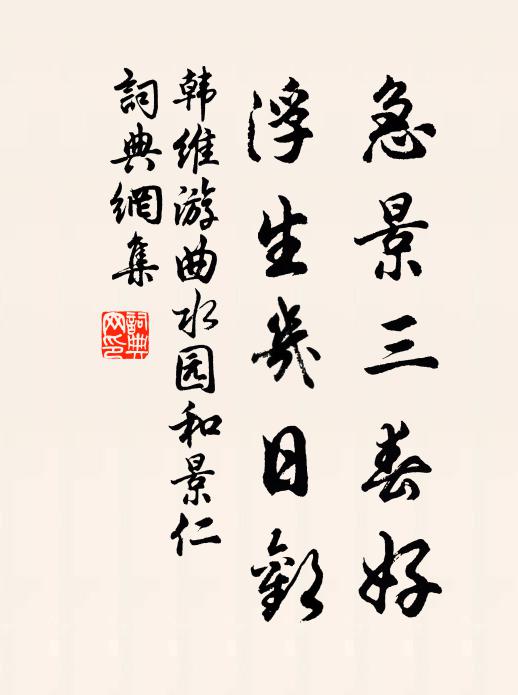 急景三春好
浮生幾日歡
韩维游曲水园和景仁
詞典網集
詞典网印